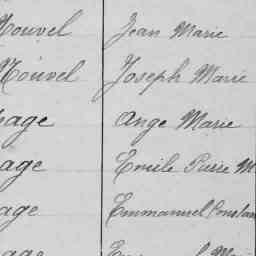 Nouvel Jean Marie
Nouvel Joseph Marie
age Ange Marie
age Emile Pierre M
age Emmanuel Constan